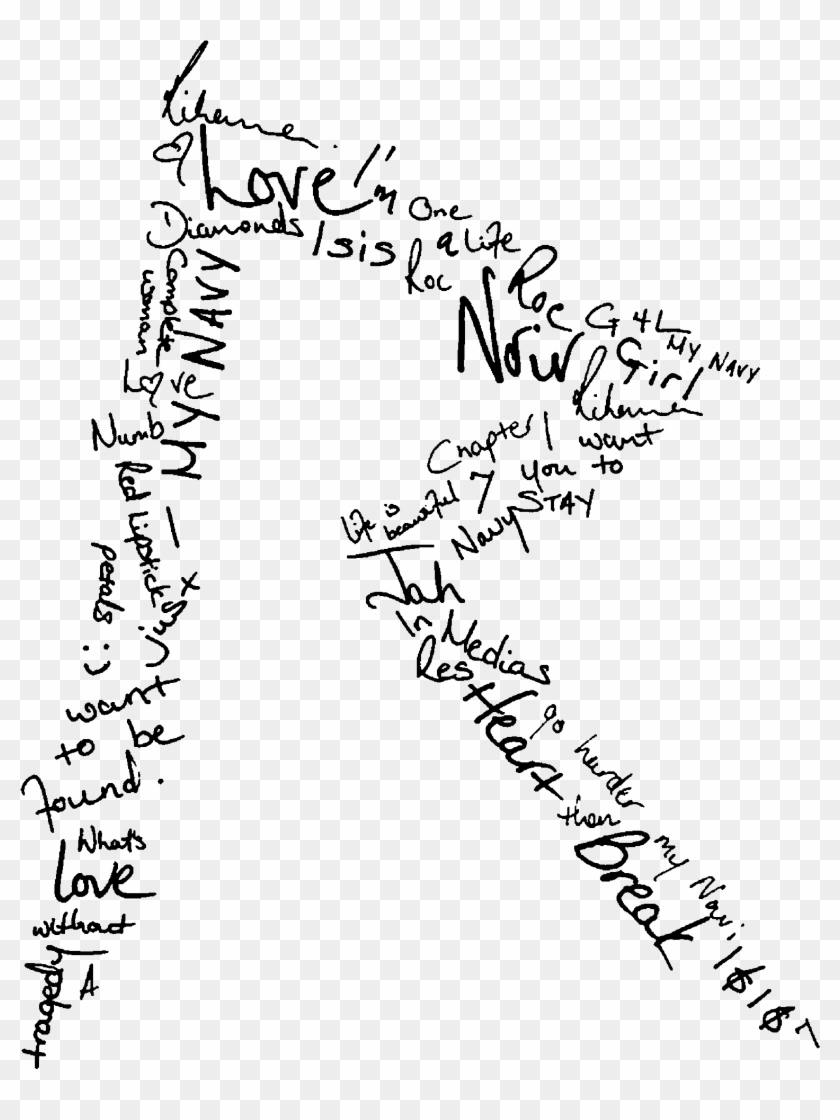 Rihanna
Love
I'm
One
Diamonds
Isis
a Life
Roc
Roc
Noir
G4L
My Navy
Girl
Rihanna
Complete
woman
MY NAVY
Love
Numb
Chapter 1
want
7 you to
STAY
Life is
beautiful
Navy
Red Lipstick
Jah
petals :)
In Medias
Res
want
to be
found.
Heart
go harder
than
my Navi
Break
What's
Love
without
A
tragedy
1$1$7